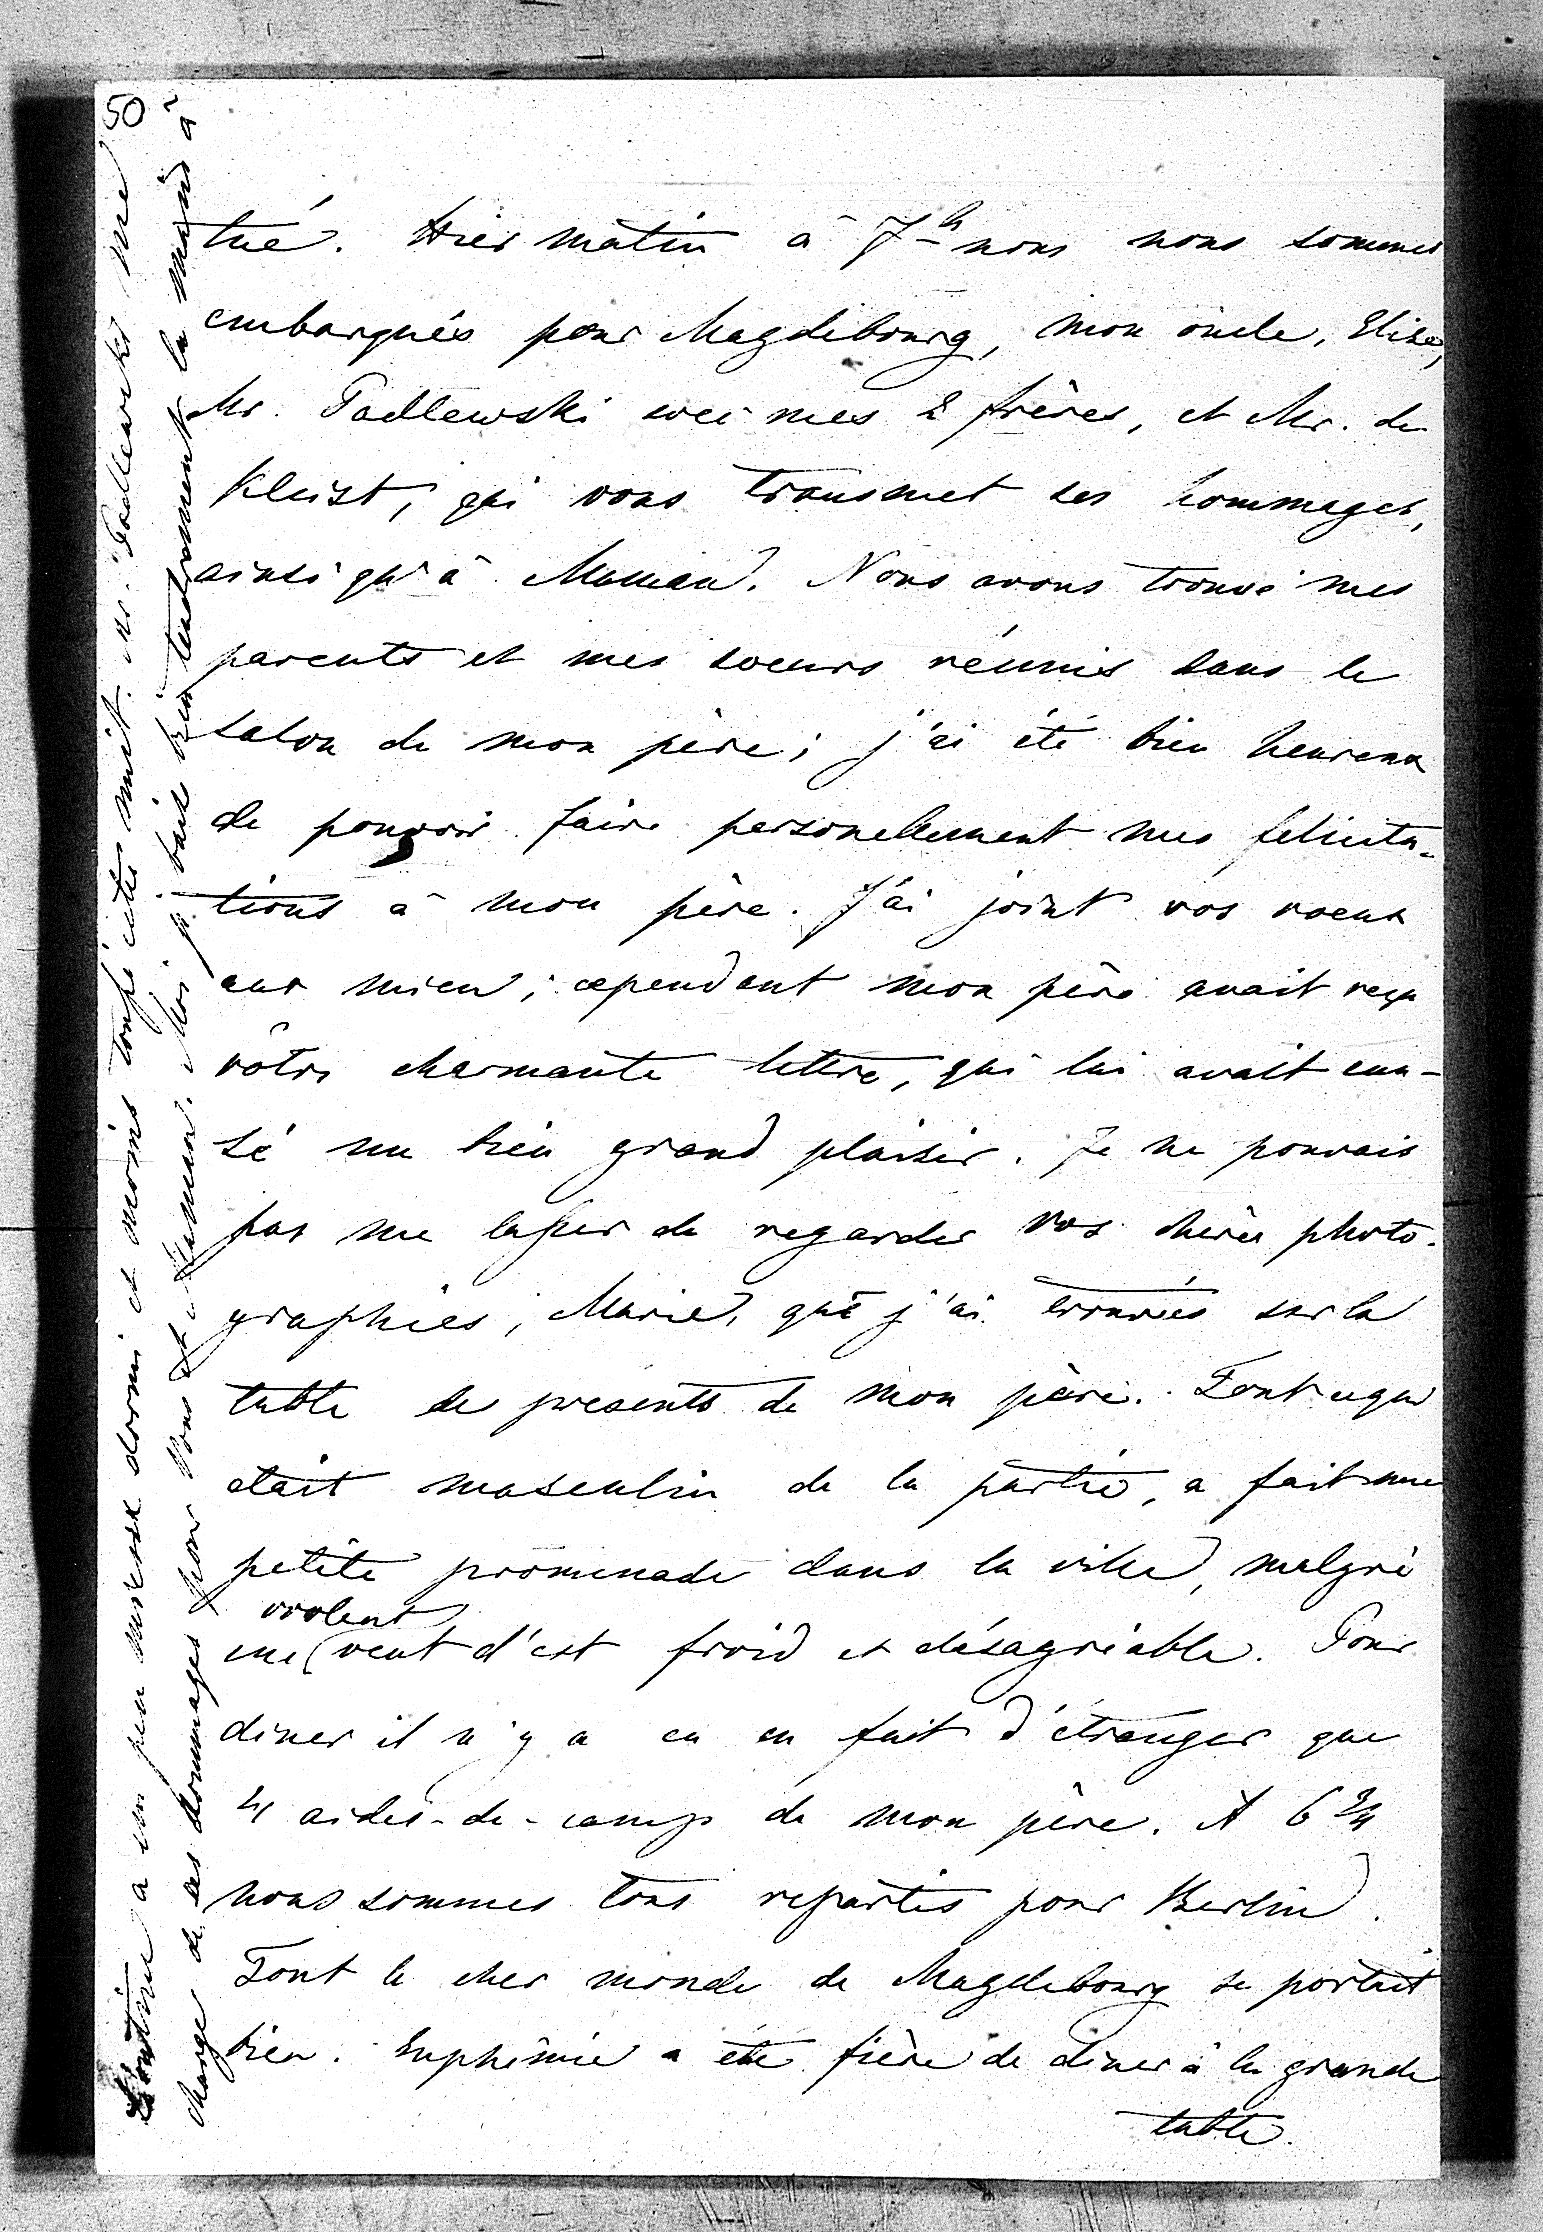 50
tué. Hier matin à 7h nous nous sommes
embarqués pour Magdebourg, mon oncle, Elise,
Mr. Padlewski avec mes 2 frères, et Mr. de
Kleist, qui vous transmet ses hommages,
ainsi qu'à Maman. Nous avons trouvé mes
parents et mes soeurs réunis dans le
salon de mon père; j'ai été bien heureux
de pouvoir faire personellement mes felicita-
tions à mon père. J'ai joint vos voeux
aux mien; cependant mon père avait reçu
vôtre charmante lettre, qui lui avait cau-
sé un bien grand plaisir. Je ne pouvais
pas me lasser de regarder vos chères photo-
graphies, Marie, que j'ai trouvées sur la
table de presents de mon père. Tout ce qui
était masculin de la partie, a fait une
petite promenade dans la ville, malgré
violent
un vent d'est froid et désagréable. Pour
diner il n'y a eu en fait d'étranger que
4 aides-de-camp de mon père. A 6 3/4
nous sommes tous repartis pour Berlin.
Tout le cher monde de Magdebourg se portait
bien. Euphémie a été fière de diner à la grande
table.
a un peu mieux dormi et moins toussé cette nuit. Mr. Padlewski me
charge de ses hommages pour Vous et Maman. Moi je baise bien tendrement la main à